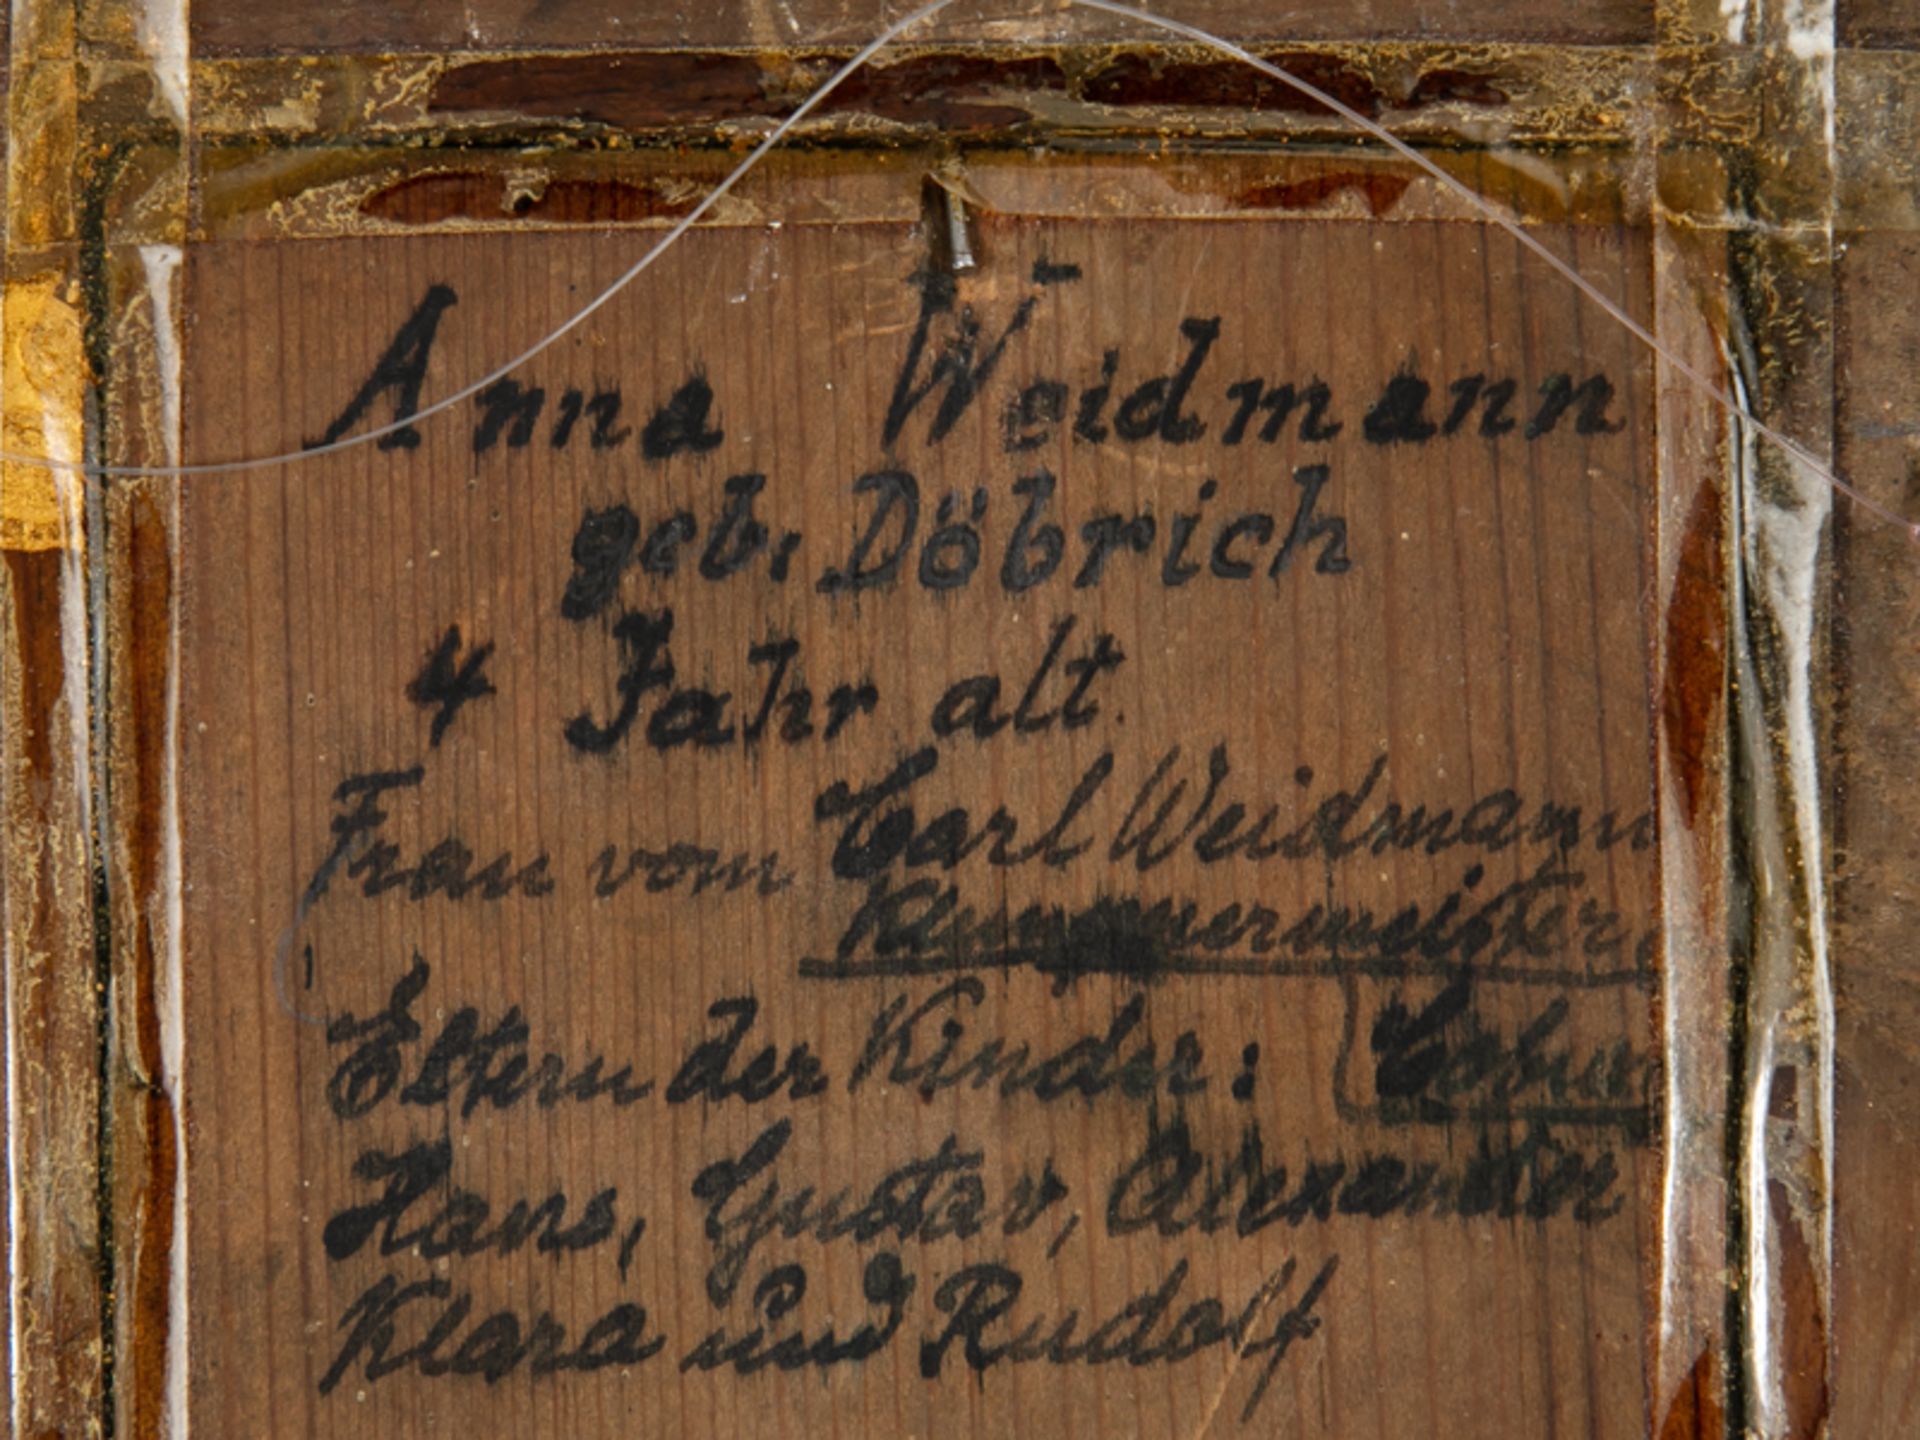 Anna Weidmann
geb. Döbrich
4 Jahr alt.
Frau vom Carl Weidmann
Klempnermeister,
Eltern der Kinder:
Hans, Gustav, Alexander
Klara und Rudolf